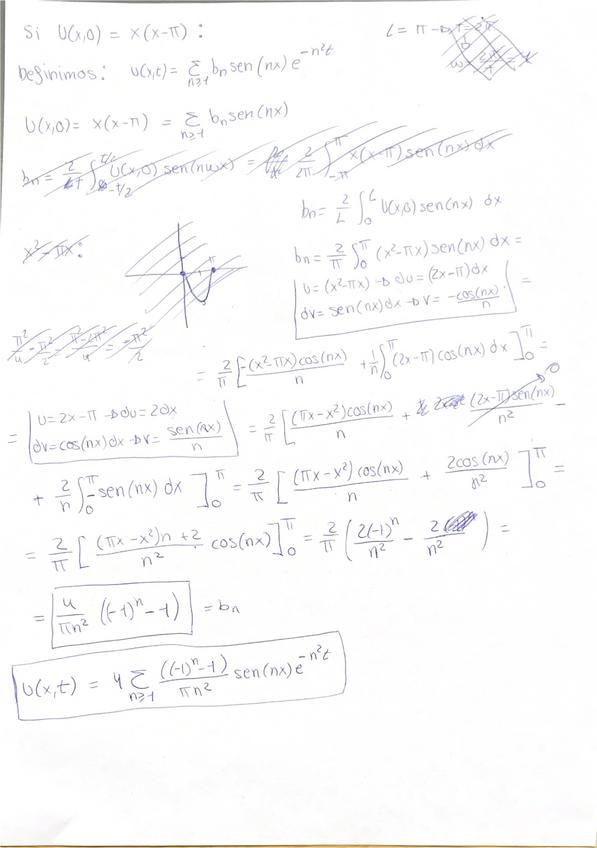 Si U(x,0) = x(x-π) :
L = π → T = 2π
Definimos: U(x,t) = Σ_{n≥1} bn sen(nx) e^{-n²t}
U(x,0) = x(x-π) = Σ_{n≥1} bn sen(nx)
bn = 2/L ∫_0^L U(x,0) sen(nx) dx
x² - πx:
bn = 2/π ∫_0^π (x²-πx) sen(nx) dx =
| U = (x²-πx) → dU = (2x-π)dx
| dV = sen(nx)dx → V = -cos(nx)/n | =
= 2/π [ -(x²-πx)cos(nx)/n + 1/n ∫_0^π (2x-π) cos(nx) dx ]_0^π =
= | U = 2x-π → dU = 2dx
dV = cos(nx)dx → V = sen(nx)/n | = 2/π [ (πx-x²)cos(nx)/n + (2x-π)sen(nx)/n² → 0 -
+ 2/n ∫_0^π -sen(nx) dx ]_0^π = 2/π [ (πx-x²)cos(nx)/n + 2cos(nx)/n² ]_0^π =
= 2/π [ (πx-x²)n+2/n² cos(nx) ]_0^π = 2/π ( 2(-1)^n/n² - 2/n² ) =
= 4/πn² ((-1)^n - 1) = bn
U(x,t) = 4 Σ_{n≥1} ((-1)^n - 1)/πn² sen(nx) e^{-n²t}